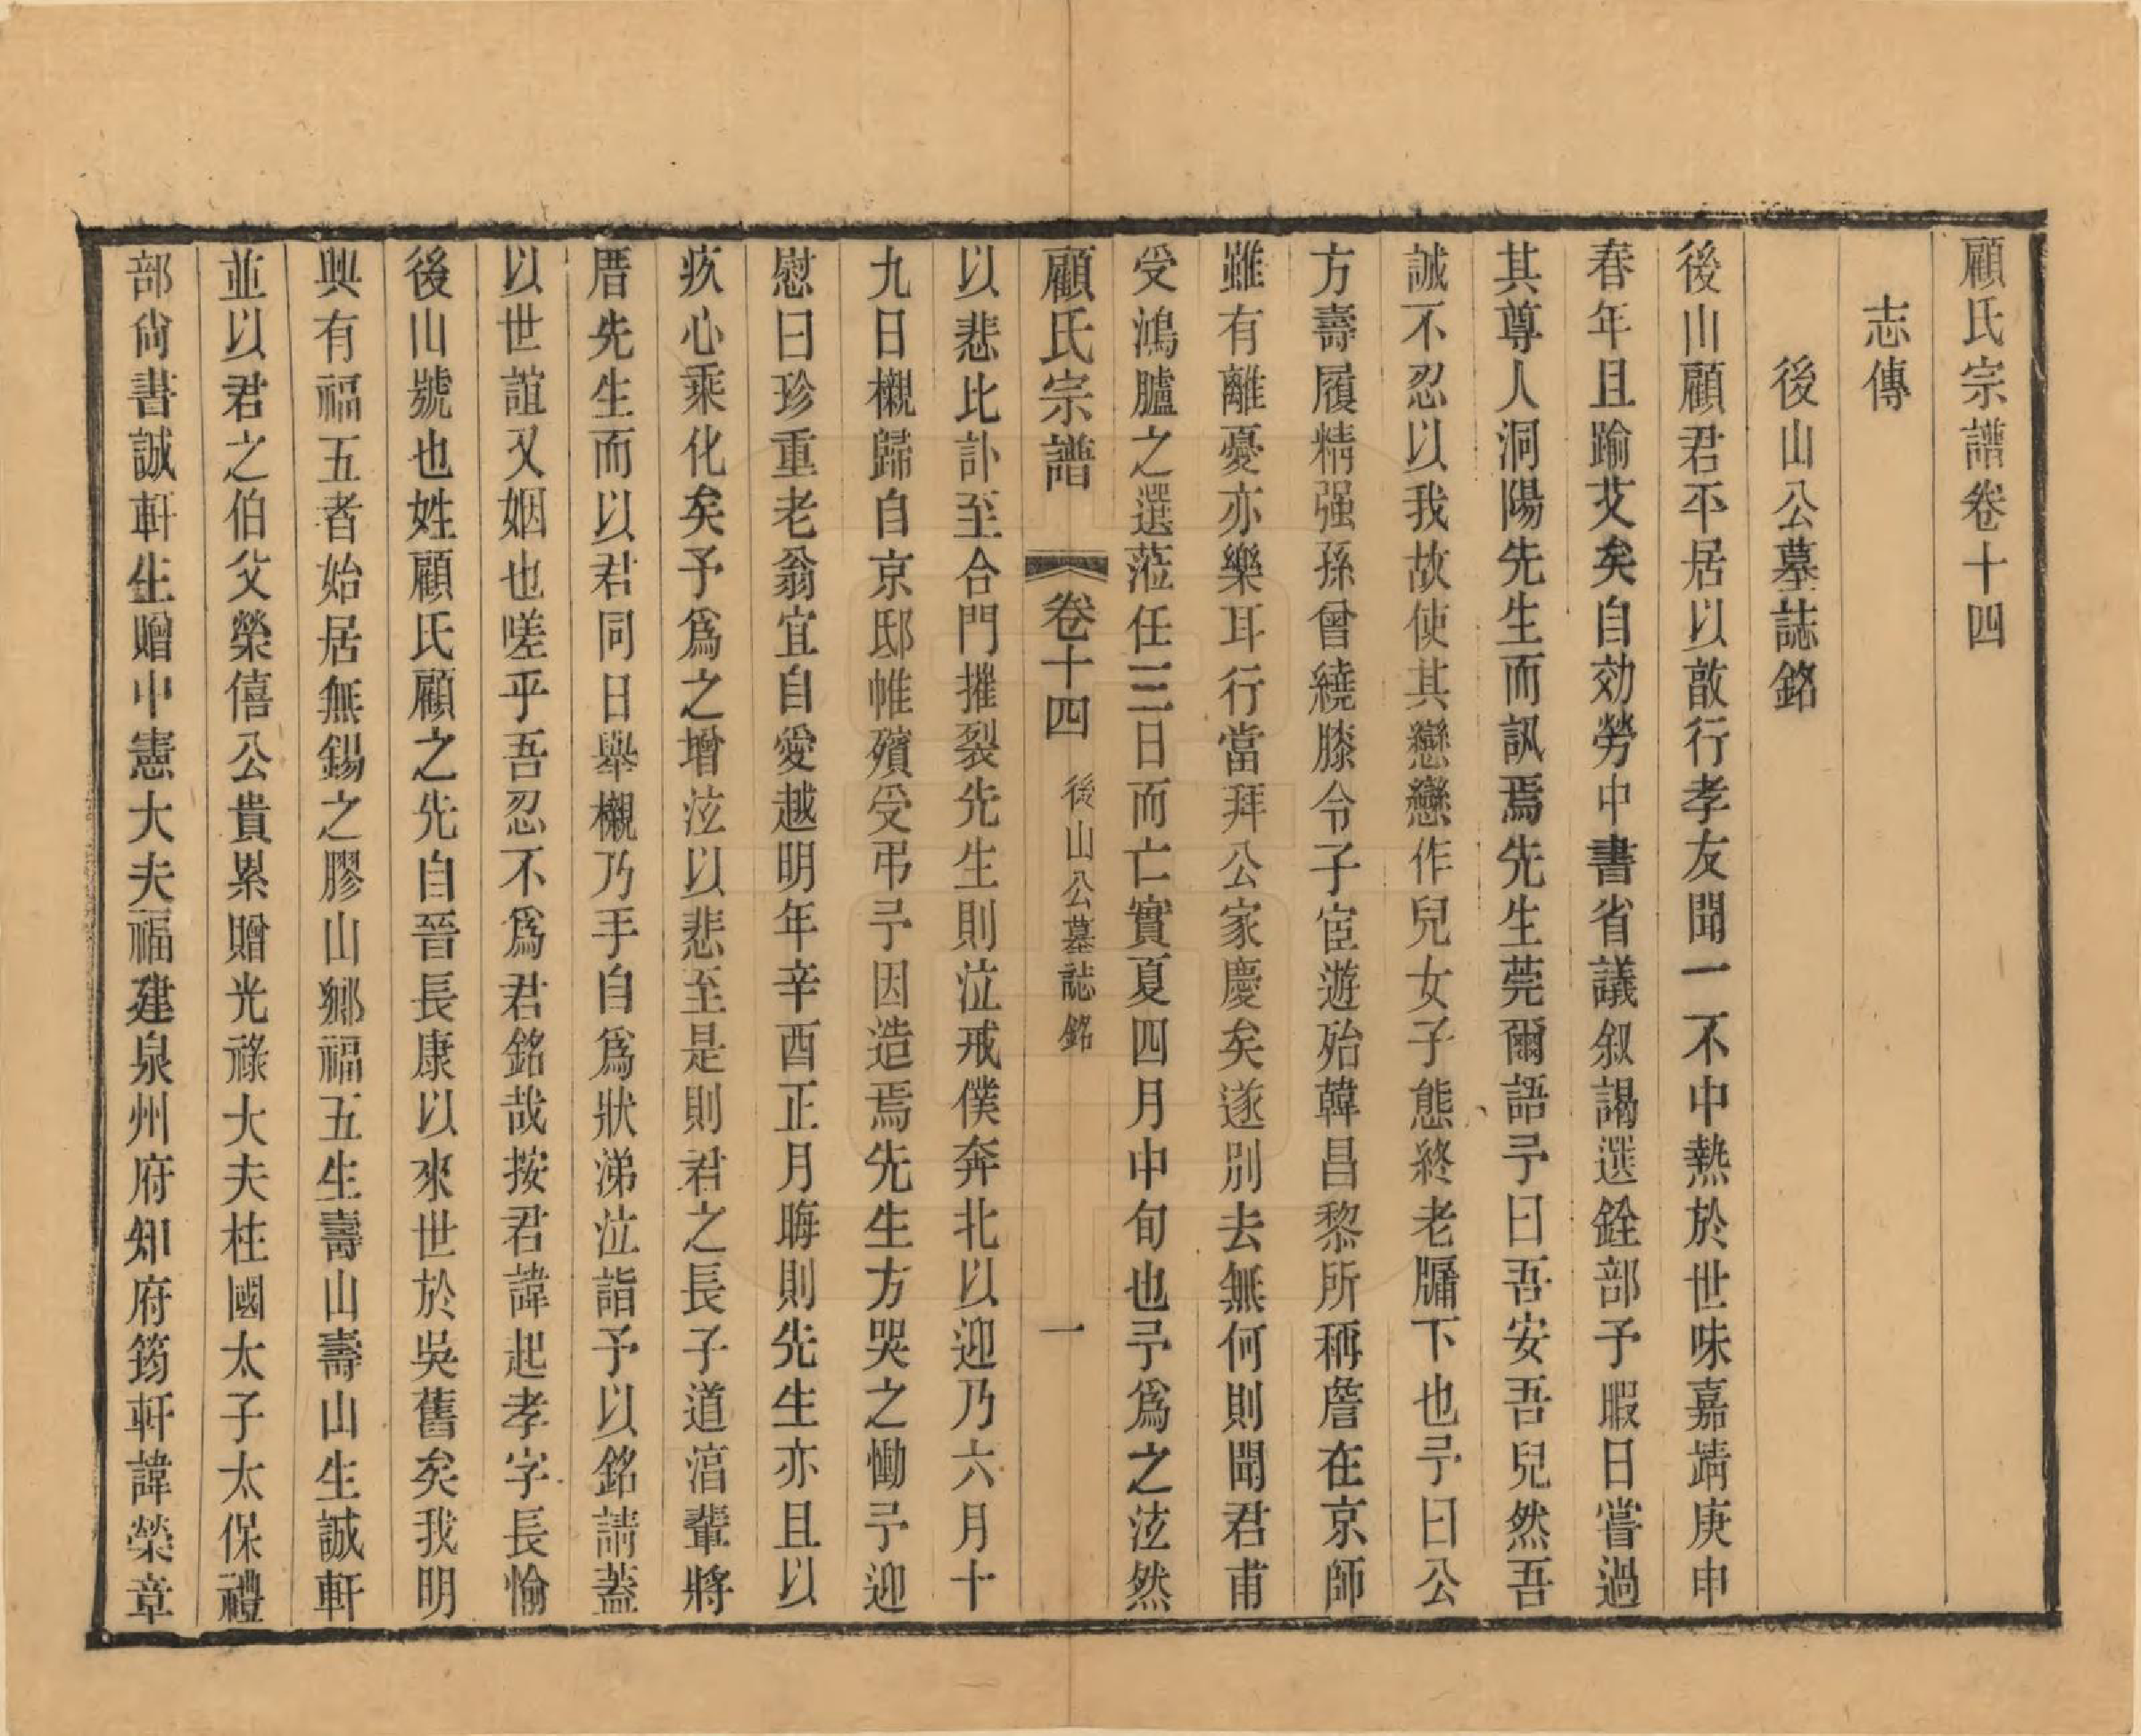 顧氏宗譜卷十四
志傳
後山公墓誌銘
後山顧君平居以敵行孝友聞一不中熱於世味嘉靖庚申
春年且踰艾矣自効勞中書省議叙謁選銓部予暇日嘗過
其尊人洞陽先生而訊焉先生莞爾語予曰吾安吾兒然吾
誠不忍以我故使其戀戀作兒女子態終老牖下也予曰公
方壽履精强孫曾繞膝令子宦遊殆韓昌黎所稱詹在京師
雖有離憂亦樂耳行當拜公家慶矣遂別去無何則聞君甫
受鴻臚之選蒞任三日而亡實夏四月中旬也予爲之泫然
顧氏宗譜 卷十四 後山公墓誌銘 一
以悲比訃至合門摧裂先生則泣戒僕奔北以迎乃六月十
九日櫬歸自京邸帷殯受弔予因造焉先生方哭之慟予迎
慰曰珍重老翁宜自愛越明年辛酉正月晦則先生亦且以
疚心乘化矣予爲之增泫以悲至是則君之長子道涫輩將
厝先生而以君同日舉櫬乃手自爲狀涕泣詣予以銘請蓋
以世誼又姻也嗟乎吾忍不爲君銘哉按君諱起孝字長愉
後山號也姓顧氏顧之先自晉長康以來世於吳舊矣我明
興有福五者始居無錫之膠山鄉福五生壽山壽山生誠軒
並以君之伯父榮僖公貴累贈光祿大夫柱國太子太保禮
部尙書誠軒生贈中憲大夫福建泉州府知府筠軒諱榮章